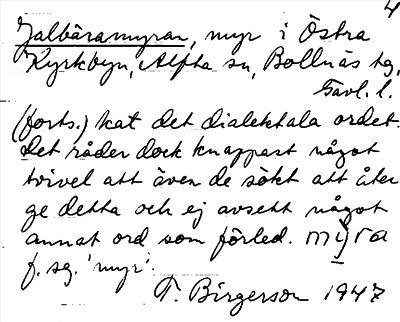 4
Jalbäramyran, myr i Östra
Kyrkbyn, Alfta sn, Bollnäs tg,
Gävl. l.
(forts.) kat det dialektala ordet.
Det råder dock knappast något
tvivel att även de sökt att åter
ge detta och ej avsett något
annat ord som förled. mỹra
f. sg. 'myr'.
T. Birgerson 1947